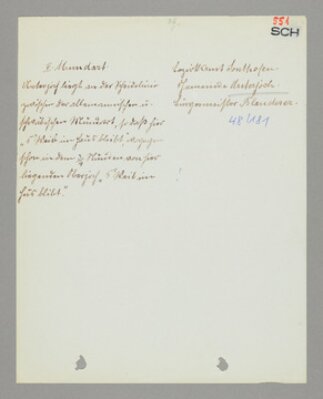 551
SCH
8. Mundart
Unterjoch liegt an der Scheidelinie
zwischen der alemannischen u.
schwäbischen Mundart, so daß hier
"s'Weib im Haus bleibt", wogegen
schon in dem Stunden von hier
liegenden Oberjoch "s'Weib im
Hus blibt".
Bezirksamt Sonthofen
Gemeinde Unterjoch
Bürgermeister
48/181